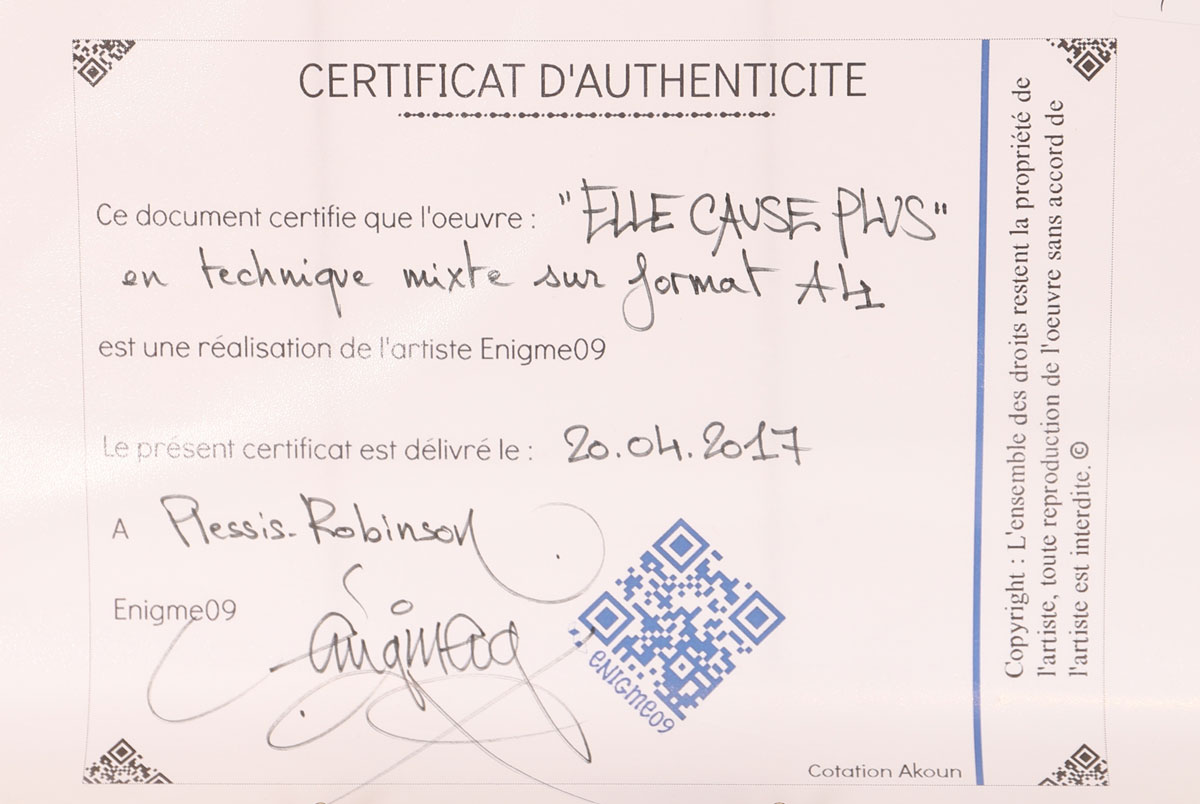 CERTIFICAT D'AUTHENTICITE
Ce document certifie que l'oeuvre : "ELLE CAUSE PLUS"
en technique mixte sur format A4
est une réalisation de l'artiste Enigme09
Le présent certificat est délivré le : 20.04.2017
A Plessis-Robinson
Enigme09
enigme09
ENIGME09
Cotation Akoun
Copyright : L'ensemble des droits restent la propriété de
l'artiste, toute reproduction de l'oeuvre sans accord de
l'artiste est interdite. ©